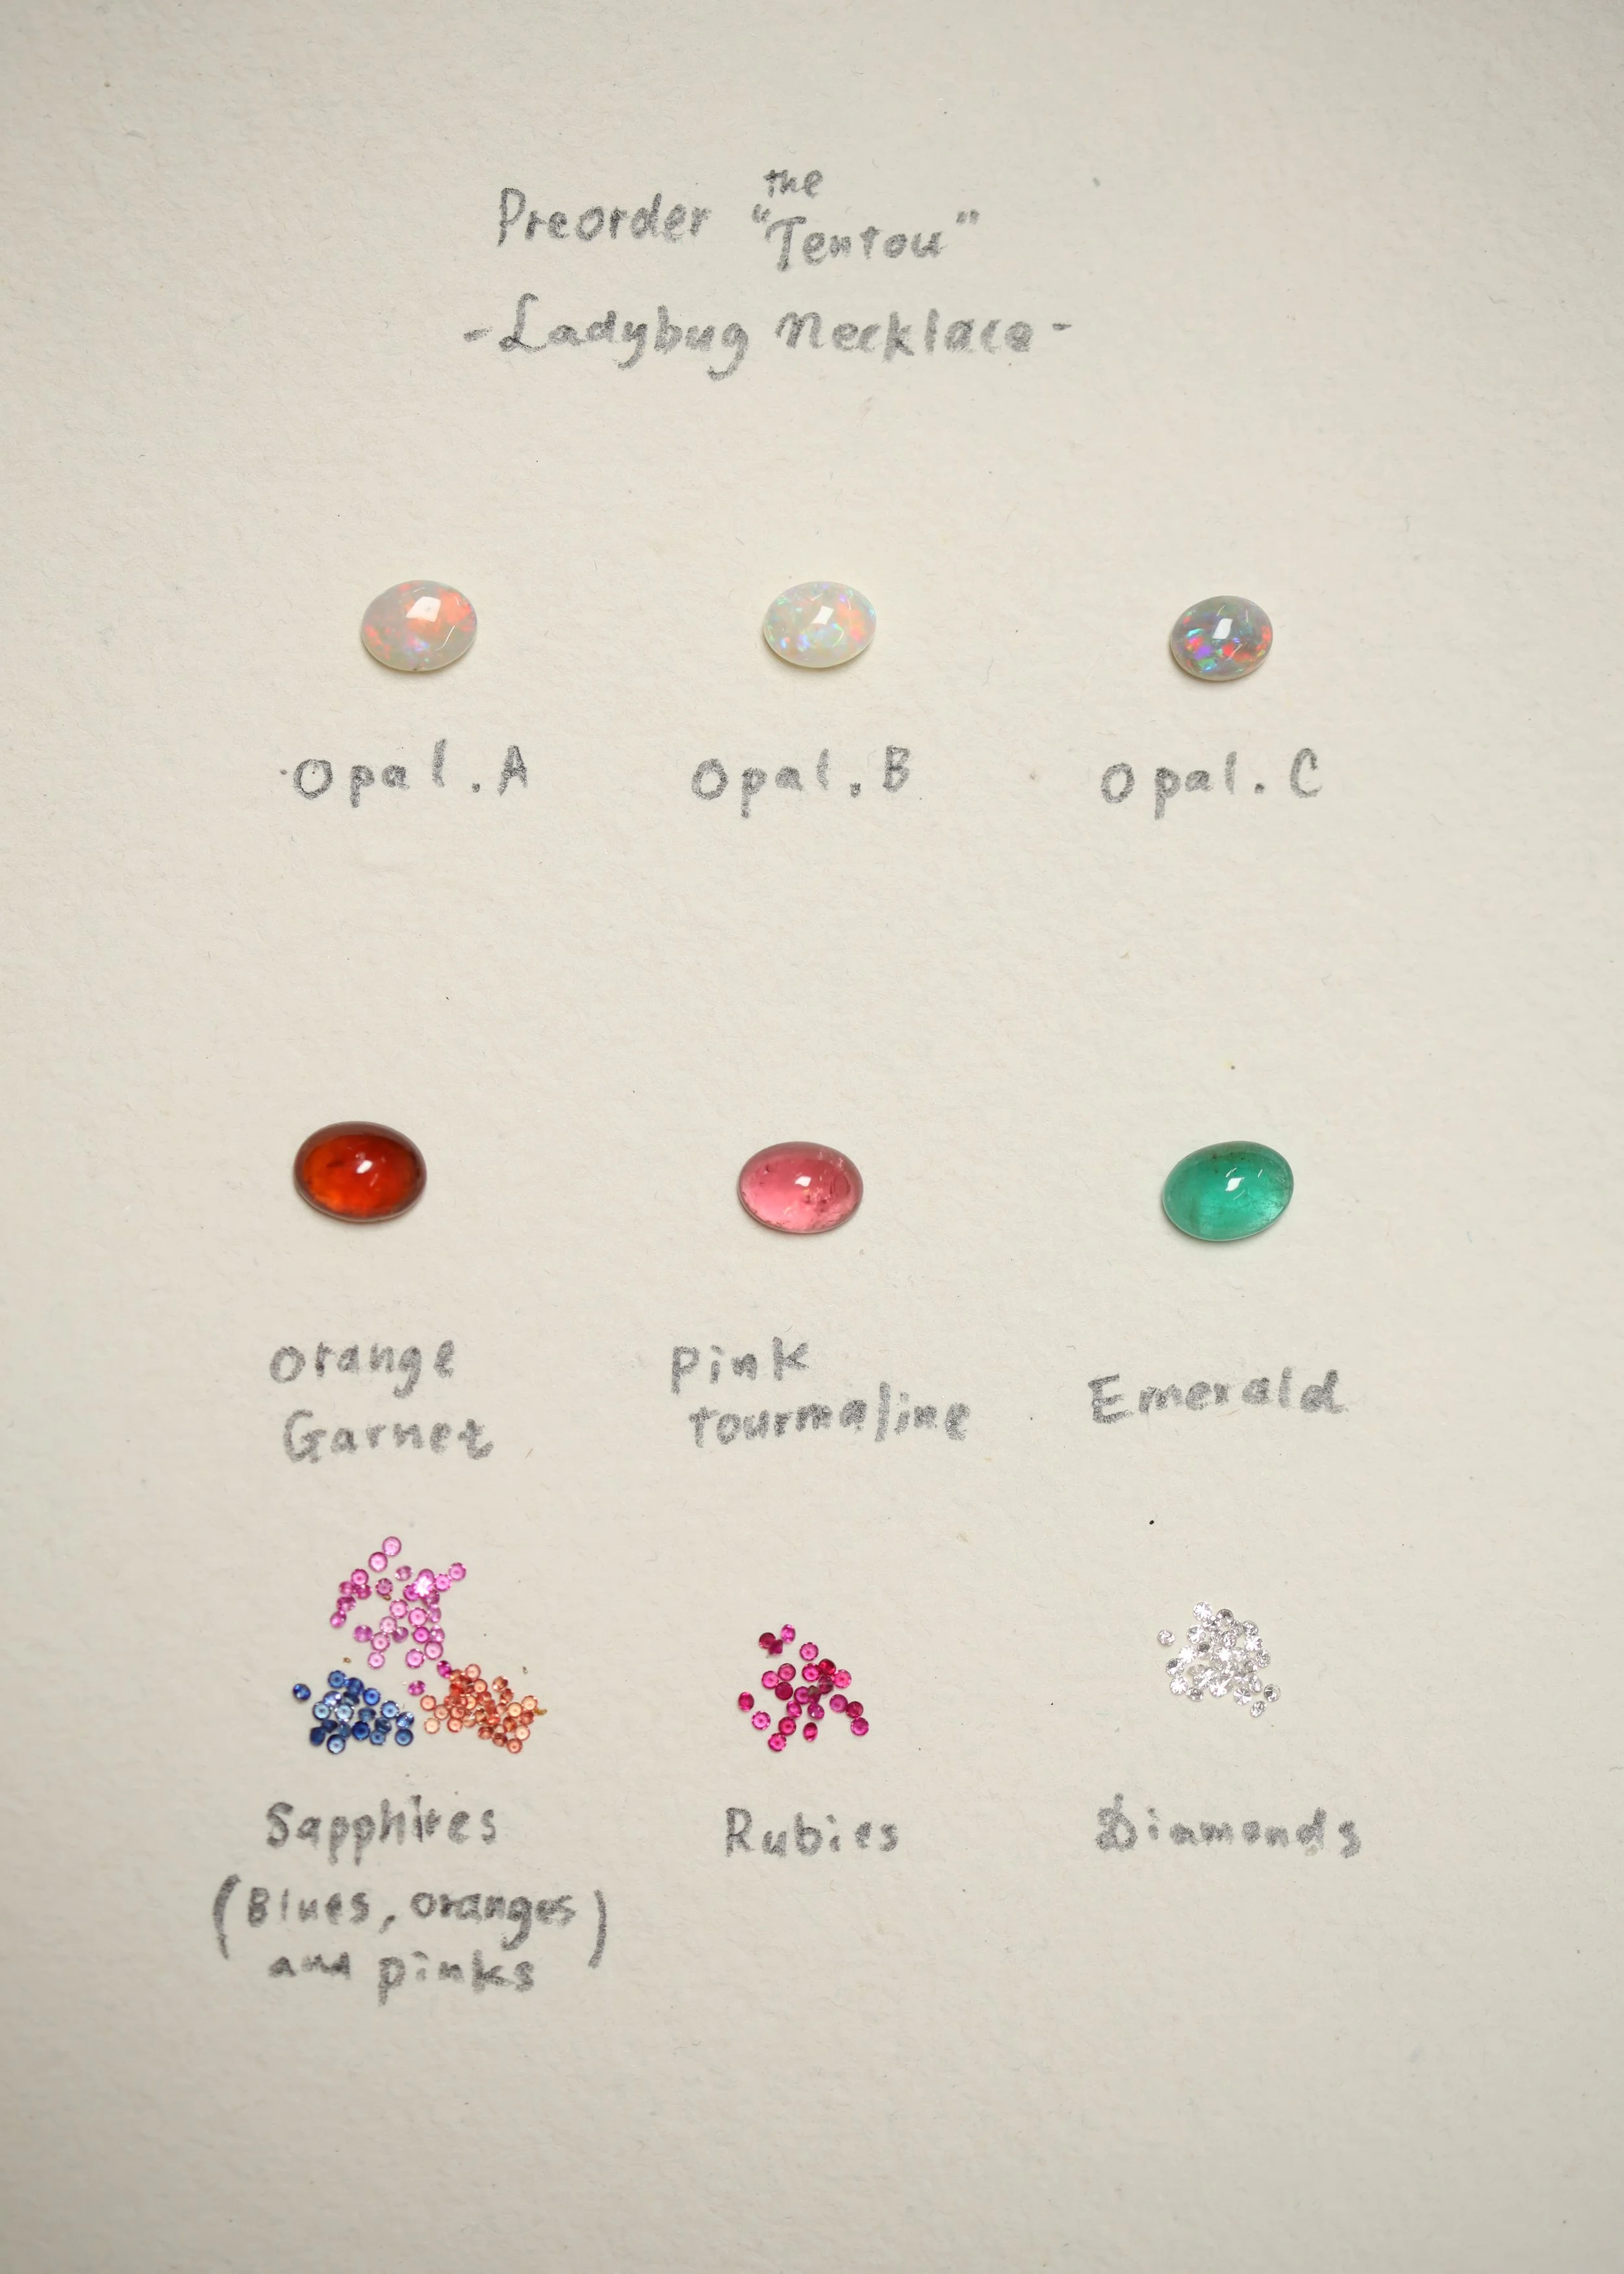 Preorder the "Tentou"
-Ladybug Necklace-
Opal.A
Opal.B
Opal.C
Orange
Garnet
Pink
tourmaline
Emerald
Sapphires
(Blues, oranges
and pinks)
Rubies
Diamonds